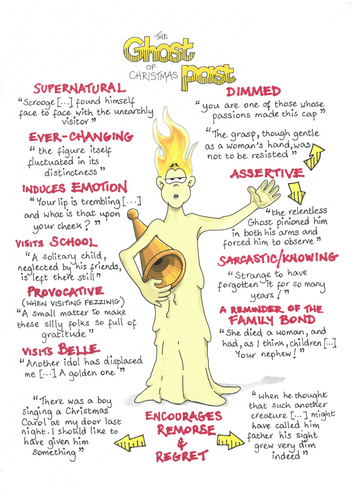 THE
Ghost
OF
CHRISTMAS
past
SUPERNATURAL
"Scrooge [...] found himself
face to face with the unearthly
visitor"
EVER-CHANGING
"the figure itself
fluctuated in its
distinctness"
INDUCES EMOTION
"Your lip is trembling [...]
and what is that upon
your cheek?"
VISITS SCHOOL
"A solitary child,
neglected by his friends,
is left there still"
PROVOCATIVE
(WHEN VISITING FEZZIWIG)
"A small matter to make
these silly folks so full of
gratitude."
VISITS BELLE
"Another idol has displaced
me [...] A golden one"
"There was a boy
singing a Christmas
Carol at my door last
night. I should like to
have given him
something"
DIMMED
"you are one of those whose
passions made this cap"
"The grasp, though gentle
as a woman's hand, was
not to be resisted"
ASSERTIVE
"the relentless
Ghost pinioned him
in both his arms and
forced him to observe"
SARCASTIC/KNOWING
"Strange to have
forgotten it for so many
years!"
A REMINDER OF THE
FAMILY BOND
"She died a woman, and
had, as I think, children [...]
Your nephew!"
ENCOURAGES
REMORSE
&
REGRET
"when he thought
that such another
creature [...] might
have called him
father his sight
grew very dim
indeed"